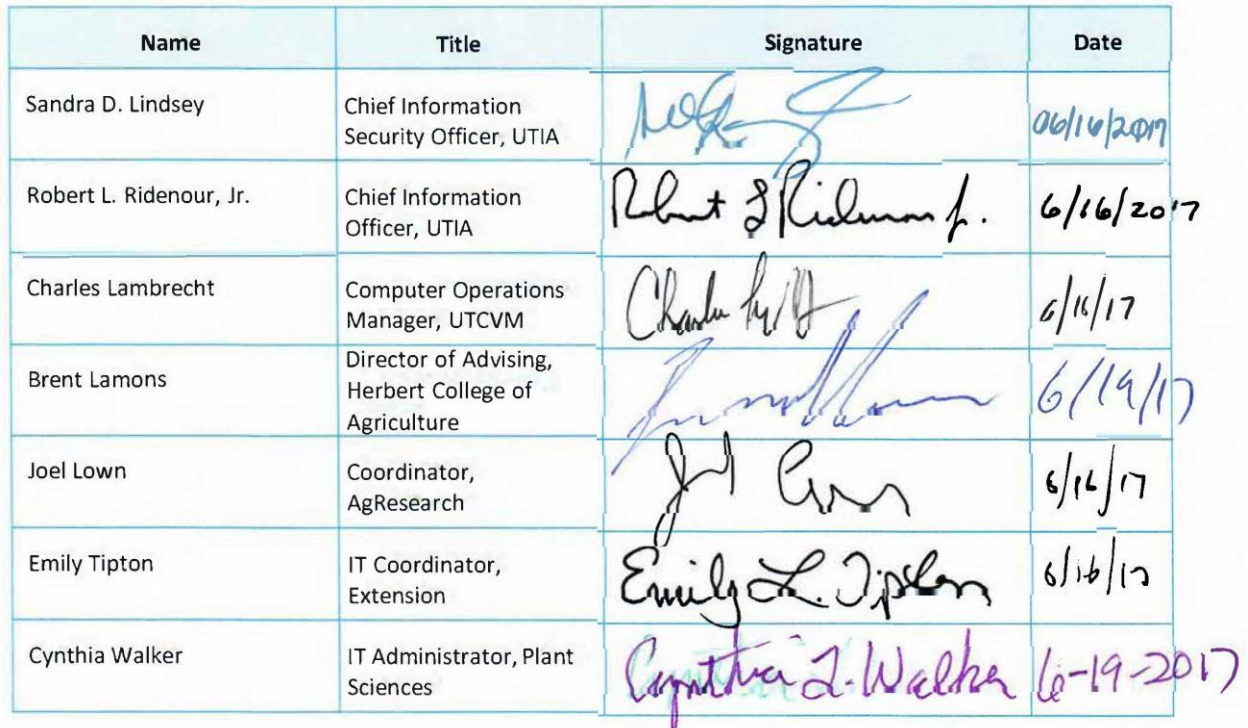 Name Title Signature Date
Sandra D. Lindsey Chief Information
Security Officer, UTIA
06/16/2017
Robert L. Ridenour, Jr. Chief Information
Officer, UTIA
Robert L Ridenour Jr. 6/16/2017
Charles Lambrecht Computer Operations
Manager, UTCVM
Charles 6/16/17
Brent Lamons Director of Advising,
Herbert College of
Agriculture
6/19/17
Joel Lown Coordinator,
AgResearch
6/16/17
Emily Tipton IT Coordinator,
Extension
Emily L. Tipton 6/16/17
Cynthia Walker IT Administrator, Plant
Sciences
Cynthia L. Walker 6-19-2017